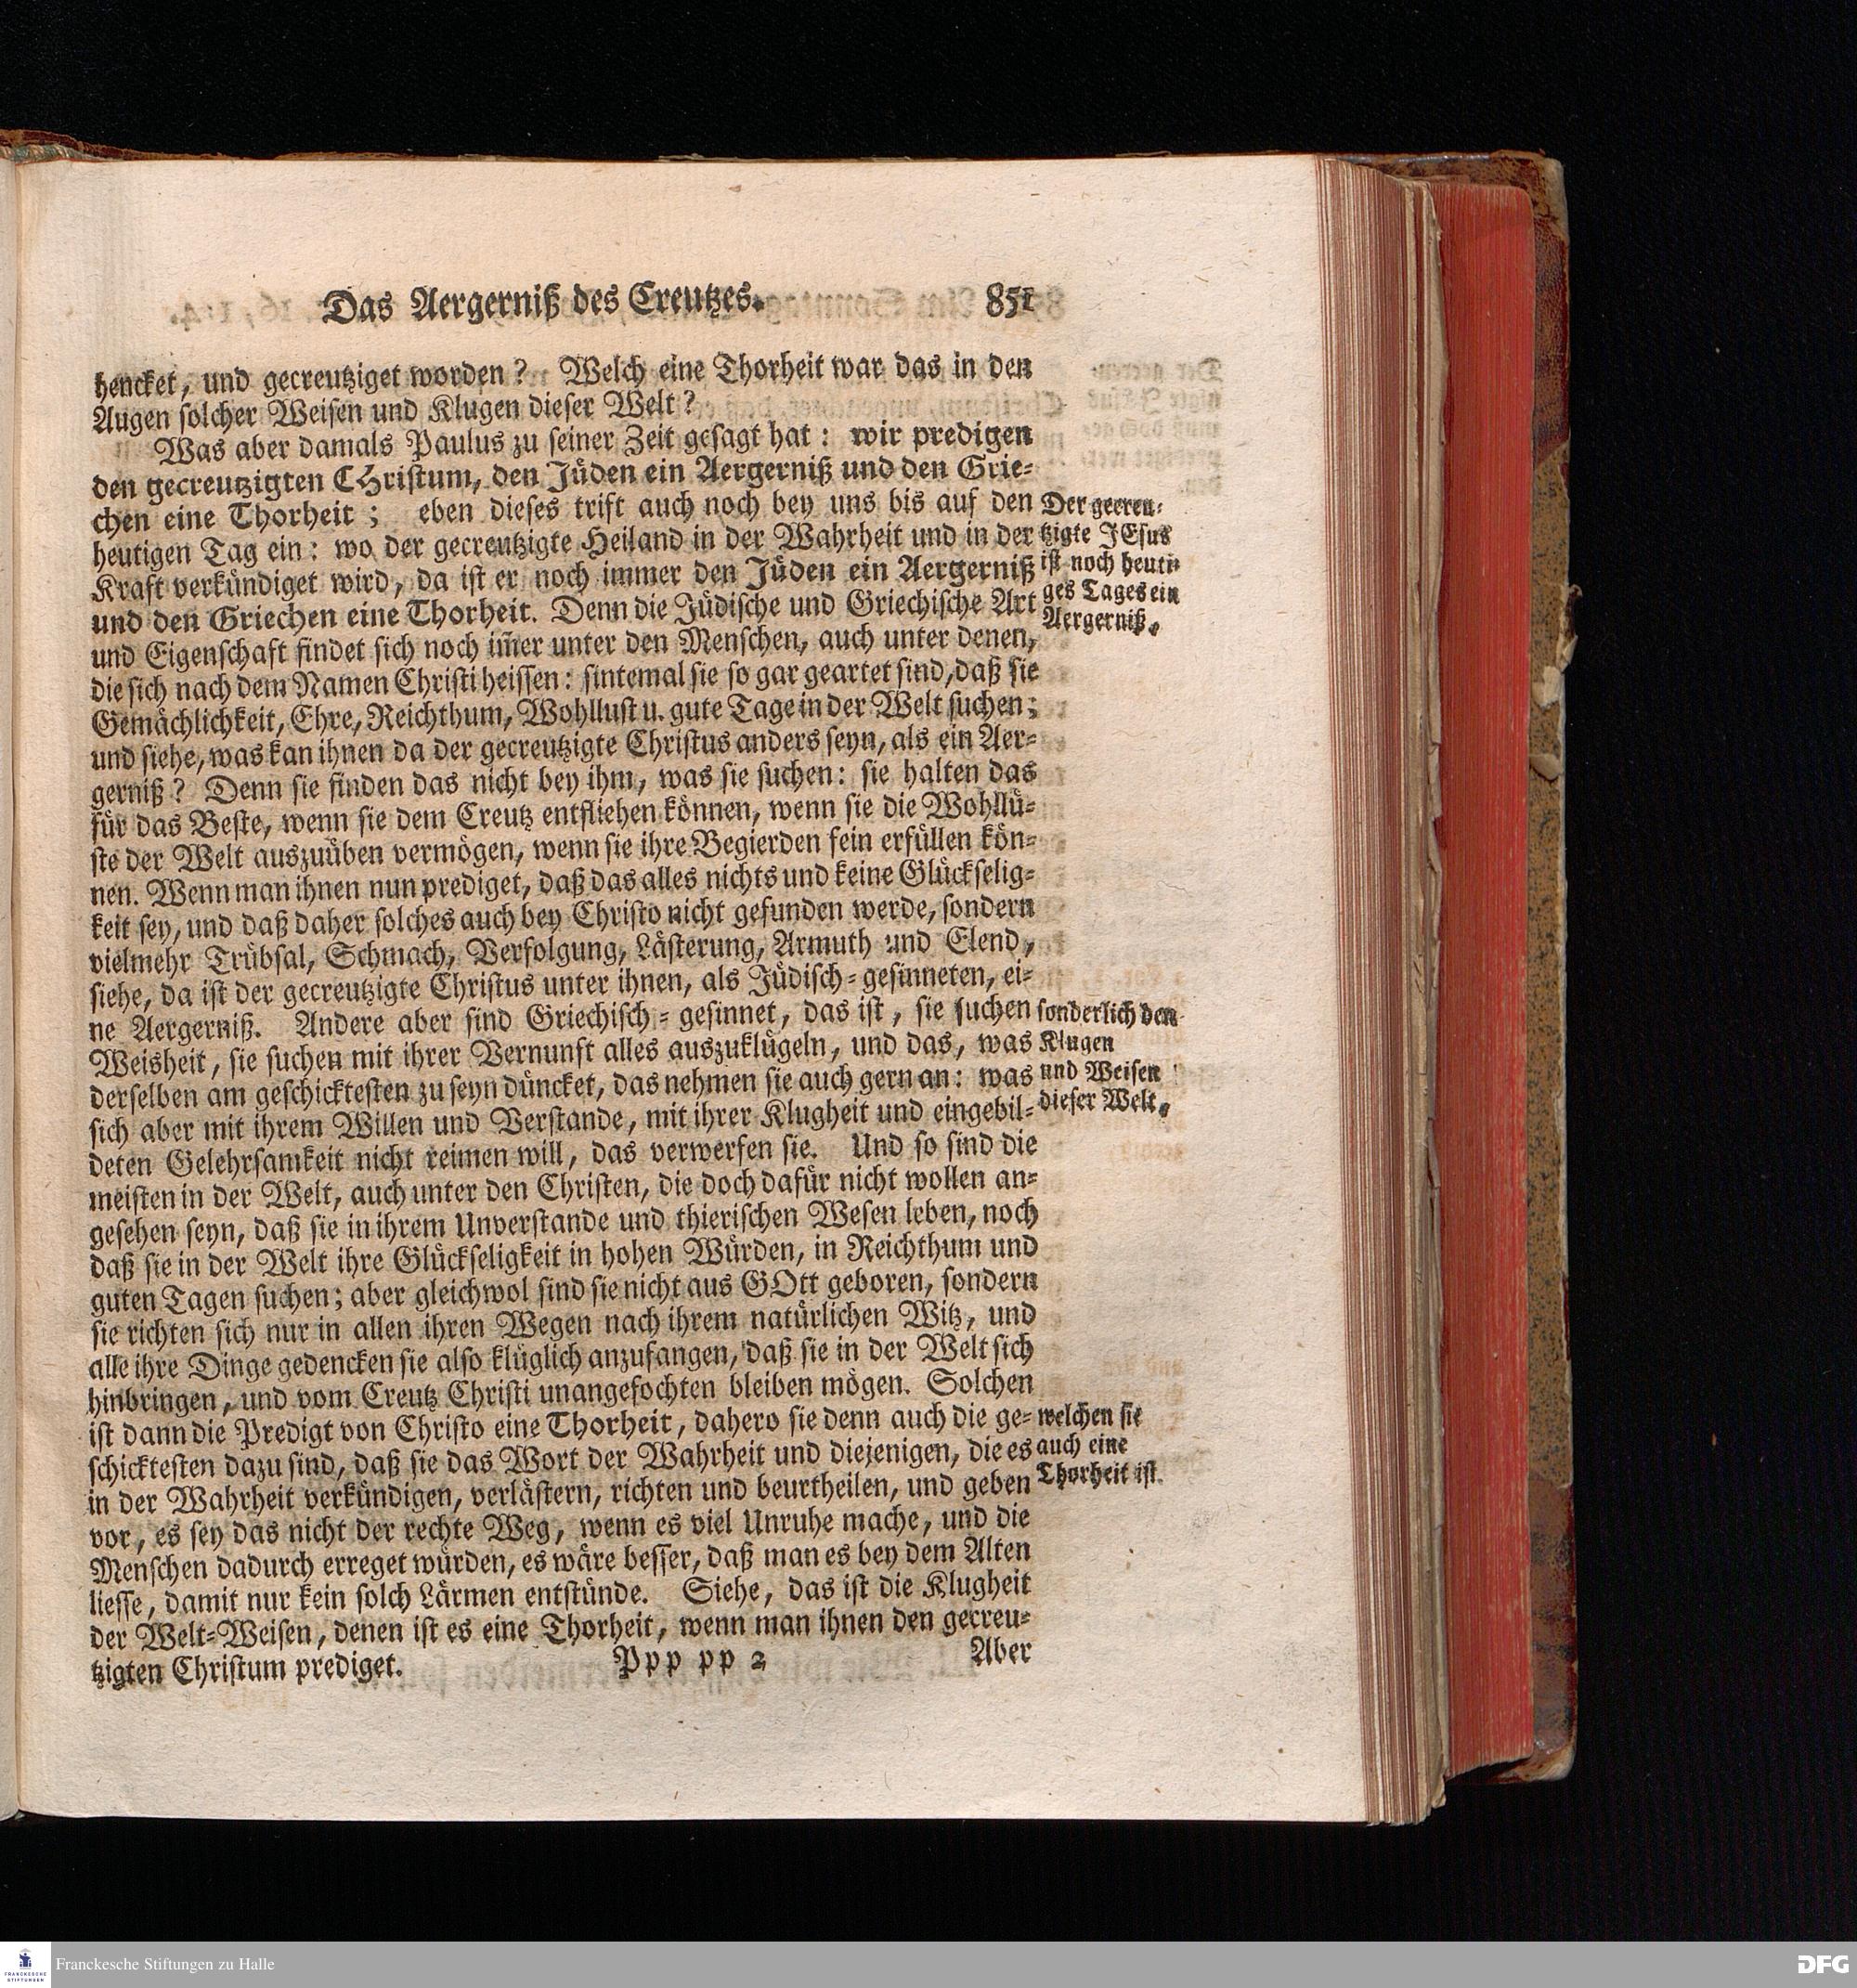 Das Aergerniß des Creutzes. 851
hencket, und gecreutziget worden? Welch eine Thorheit war das in den
Augen solcher Weisen und Klugen dieser Welt?
Was aber damals Paulus zu seiner Zeit gesagt hat: wir predigen
den gecreutzigten CHristum, den Jüden ein Aergerniß und den Grie-
chen eine Thorheit; eben dieses trift auch noch bey uns bis auf den
heutigen Tag ein: wo der gecreutzigte Heiland in der Wahrheit und in der
Kraft verkündiget wird, da ist er noch immer den Jüden ein Aergerniß
und den Griechen eine Thorheit. Denn die Jüdische und Griechische Art
und Eigenschaft findet sich noch im̃er unter den Menschen, auch unter denen,
die sich nach dem Namen Christi heissen: sintemal sie so gar geartet sind, daß sie
Gemächlichkeit, Ehre, Reichthum, Wohllust u. gute Tage in der Welt suchen;
und siehe, was kan ihnen da der gecreutzigte Christus anders seyn, als ein Aer-
gerniß? Denn sie finden das nicht bey ihm, was sie suchen: sie halten das
für das Beste, wenn sie dem Creutz entfliehen können, wenn sie die Wohllü-
ste der Welt auszuüben vermögen, wenn sie ihre Begierden fein erfüllen kön-
nen. Wenn man ihnen nun prediget, daß das alles nichts und keine Glückselig-
keit sey, und daß daher solches auch bey Christo nicht gefunden werde, sondern
vielmehr Trübsal, Schmach, Verfolgung, Lästerung, Armuth und Elend,
siehe, da ist der gecreutzigte Christus unter ihnen, als Jüdisch-gesinneten, ei-
ne Aergerniß. Andere aber sind Griechisch-gesinnet, das ist, sie suchen
Weisheit, sie suchen mit ihrer Vernunft alles auszuklügeln, und das, was
derselben am geschicktesten zu seyn düncket, das nehmen sie auch gern an: was
sich aber mit ihrem Willen und Verstande, mit ihrer Klugheit und eingebil-
deten Gelehrsamkeit nicht reimen will, das verwerfen sie. Und so sind die
meisten in der Welt, auch unter den Christen, die doch dafür nicht wollen an-
gesehen seyn, daß sie in ihrem Unverstande und thierischen Wesen leben, noch
daß sie in der Welt ihre Glückseligkeit in hohen Würden, in Reichthum und
guten Tagen suchen; aber gleichwol sind sie nicht aus GOtt geboren, sondern
sie richten sich nur in allen ihren Wegen nach ihrem natürlichen Witz, und
alle ihre Dinge gedencken sie also klüglich anzufangen, daß sie in der Welt sich
hinbringen, und vom Creutz Christi unangefochten bleiben mögen. Solchen
ist dann die Predigt von Christo eine Thorheit, dahero sie denn auch die ge-
schicktesten dazu sind, daß sie das Wort der Wahrheit und diejenigen, die es
in der Wahrheit verkündigen, verlästern, richten und beurtheilen, und geben
vor, es sey das nicht der rechte Weg, wenn es viel Unruhe mache, und die
Menschen dadurch erreget würden, es wäre besser, daß man es bey dem Alten
liesse, damit nur kein solch Lärmen entstünde. Siehe, das ist die Klugheit
der Welt-Weisen, denen ist es eine Thorheit, wenn man ihnen den gecreu-
tzigten Christum prediget. Ppp pp 2 Aber
Der gecreu-
tzigte JEsus
ist noch heuti-
ges Tages ein
Aergerniß,
sonderlich den
Klugen
und Weisen
dieser Welt,
welchen sie
auch eine
Thorheit ist.
Franckesche Stiftungen zu Halle
FRANCKESCHE
STIFTUNGEN
DFG